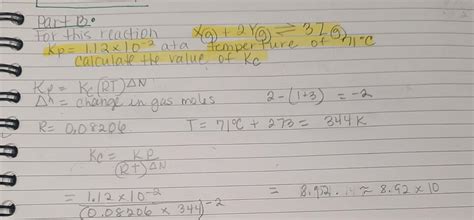 Part B.
For this reaction X(g) + 2Y(g) ⇌ 3Z(g),
Kp = 1.12 x 10^-2 at a temperture of 71°C
calculate the value of Kc
Kp = Kc(RT)^ΔN
Δn = change in gas moles 2-(1+3) = -2
R = 0.08206 T = 71°C + 273 = 344K
Kc = Kp / (RT)^ΔN
= 1.12 x 10^-2 / (0.08206 x 344)^-2 = 8.92 ≈ 8.92 x 10